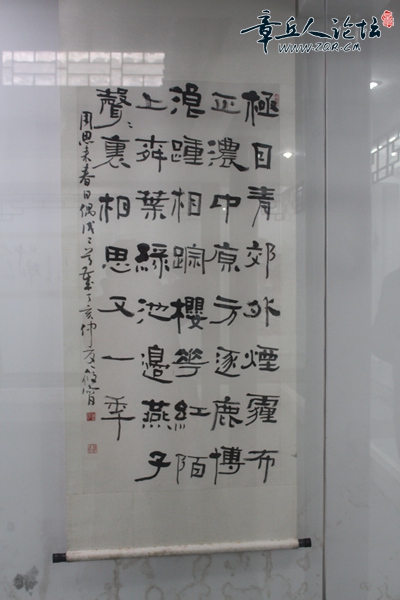 章丘人论坛
www.ZQR.CM
極目青郊外煙霾布
正濃中原方逐鹿博
浪踵相踪櫻花紅陌
上柳葉綠池邊燕子
聲々裏相思又一年
周恩来春日偶成二首 丁亥仲夏